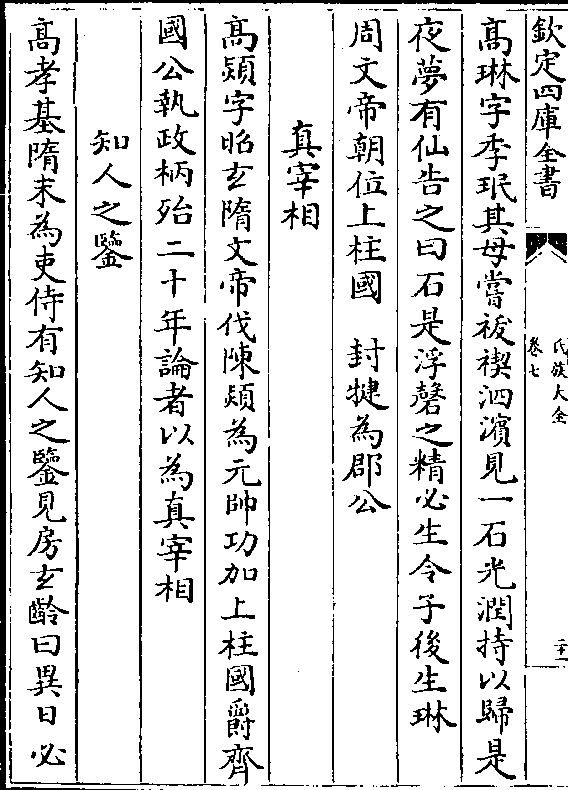 欽定四庫全書
氏族大全
卷七
二十一
髙琳字季珉其母嘗祓禊泗濱見一石光潤持以歸是
夜夢有仙告之曰石是浮磬之精必生令子後生琳
周文帝朝位上柱國　封犍為郡公
真宰相
髙熲字昭玄隋文帝伐陳熲為元帥功加上柱國爵齊
國公執政柄殆二十年論者以為真宰相
知人之鑒
髙孝基隋末為吏侍有知人之鑒見房玄齡曰異日必